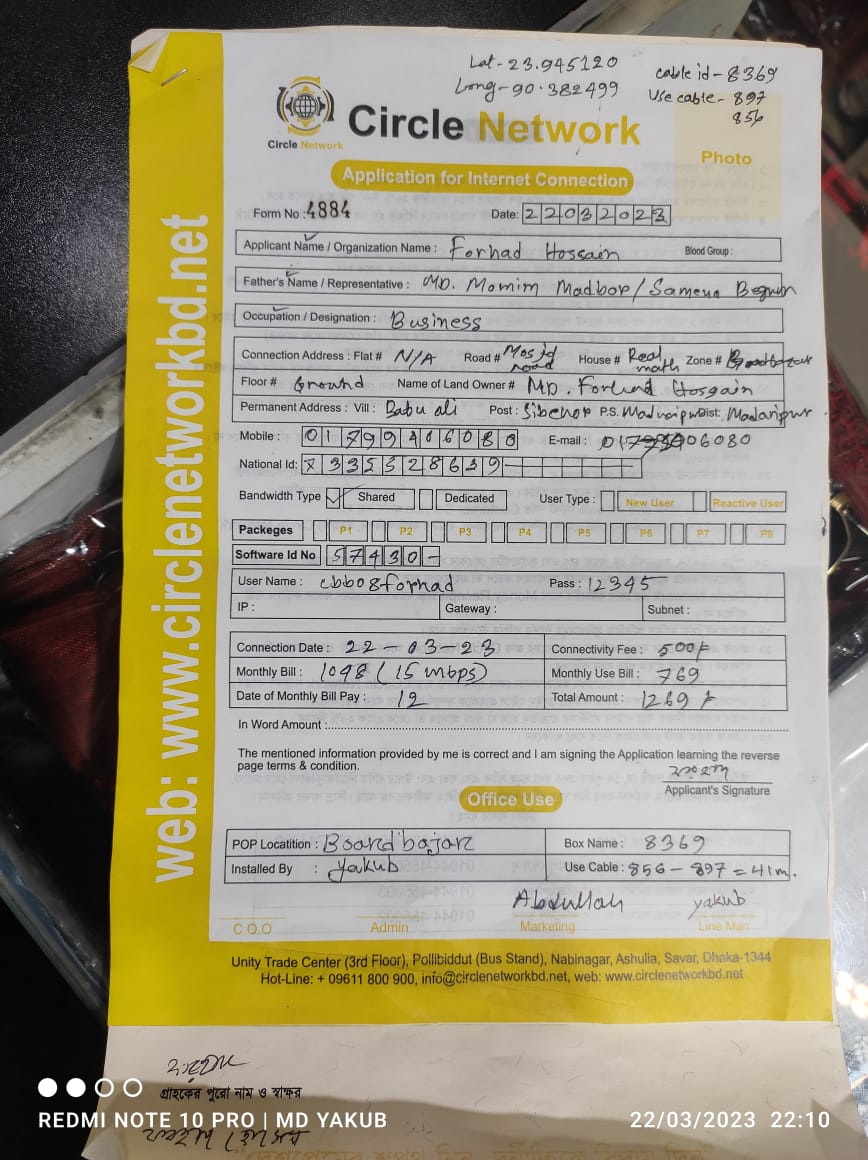 Lat - 23.945120
Long - 90.382499
cable id - 8369
Use cable - 897
856
Circle Network
Circle Network
Photo
Application for Internet Connection
Form No : 4884
Date: 22032023
Applicant Name / Organization Name : Forhad Hossain Blood Group :
Father's Name / Representative : MD. Momim Madbor / Samena Begum
Occupation / Designation : Business
Connection Address : Flat # N/A Road # Mosjd road House # Real math Zone #
Floor # Ground Name of Land Owner # MD. Forhad Hossain
Permanent Address : Vill : Babu ali Post : Sibchor P.S. Madaripur Dist: Madaripur
Mobile : 01799406080 E-mail : 06080
National Id: 7335328639
Bandwidth Type Shared Dedicated User Type : New User Reactive User
Packeges P1 P2 P3 P4 P5 P6 P7 P8
Software Id No 57430 -
User Name : cbbo8forhad Pass : 12345
IP : Gateway : Subnet :
Connection Date : 22-03-23 Connectivity Fee : 500/-
Monthly Bill : 1098 (15 mbps) Monthly Use Bill : 769
Date of Monthly Bill Pay : 12 Total Amount : 1269/-
In Word Amount :
The mentioned information provided by me is correct and I am signing the Application learning the reverse
page terms & condition.
Applicant's Signature
Office Use
POP Locatition : Boardbajar Box Name : 8369
Installed By : yakub Use Cable : 856 - 897 = 41m.
Abdullah yakub
C.O.O Admin Marketing Line Man
Unity Trade Center (3rd Floor), Pollibiddut (Bus Stand), Nabinagar, Ashulia, Savar, Dhaka-1344
Hot-Line: + 09611 800 900, info@circlenetworkbd.net, web: www.circlenetworkbd.net
web: www.circlenetworkbd.net
গ্রাহকের পুরো নাম ও স্বাক্ষর
REDMI NOTE 10 PRO | MD YAKUB
22/03/2023 22:10